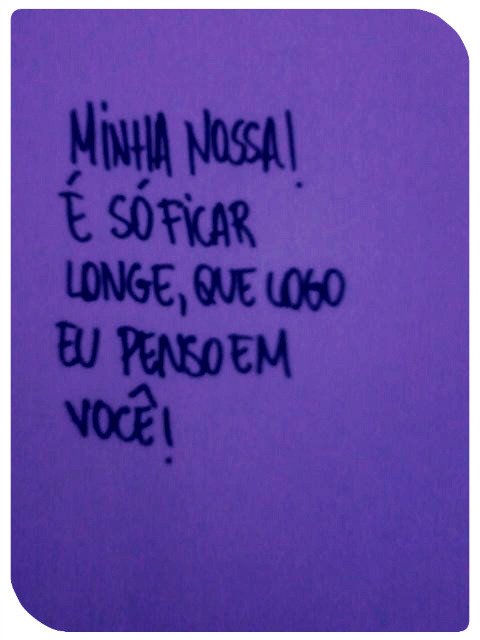 MINHA NOSSA!
É SÓ FICAR
LONGE, QUE LOGO
EU PENSO EM
VOCÊ!